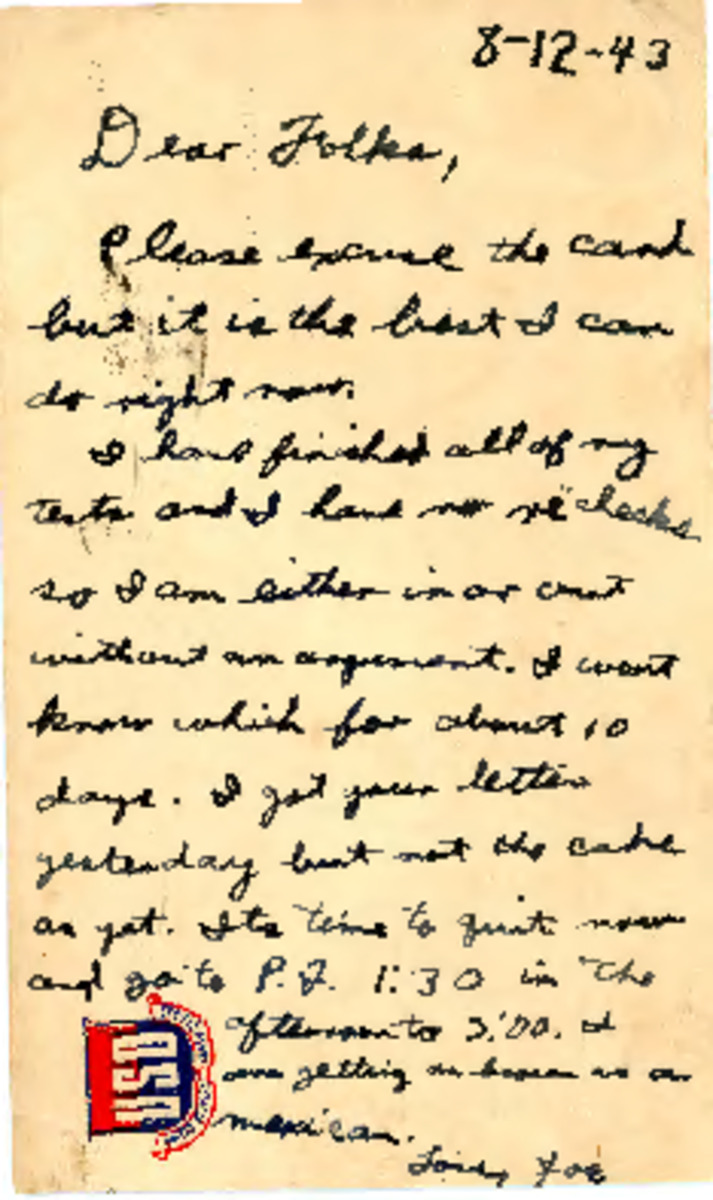 8-12-43
Dear Folks,
Please excuse the card
but it is the best I can
do right now.
I have finished all of my
tests and I have no re"checks
so I am either in or out
without an argument. I wont
know which for about 10
days. I got your letter
yesterday but not the cake
as yet. Its time to quit now
and go to P.T. 1:30 in the
afternoon to 3:00. I
am getting as brown as a
mexican.
Love, Joe
USO